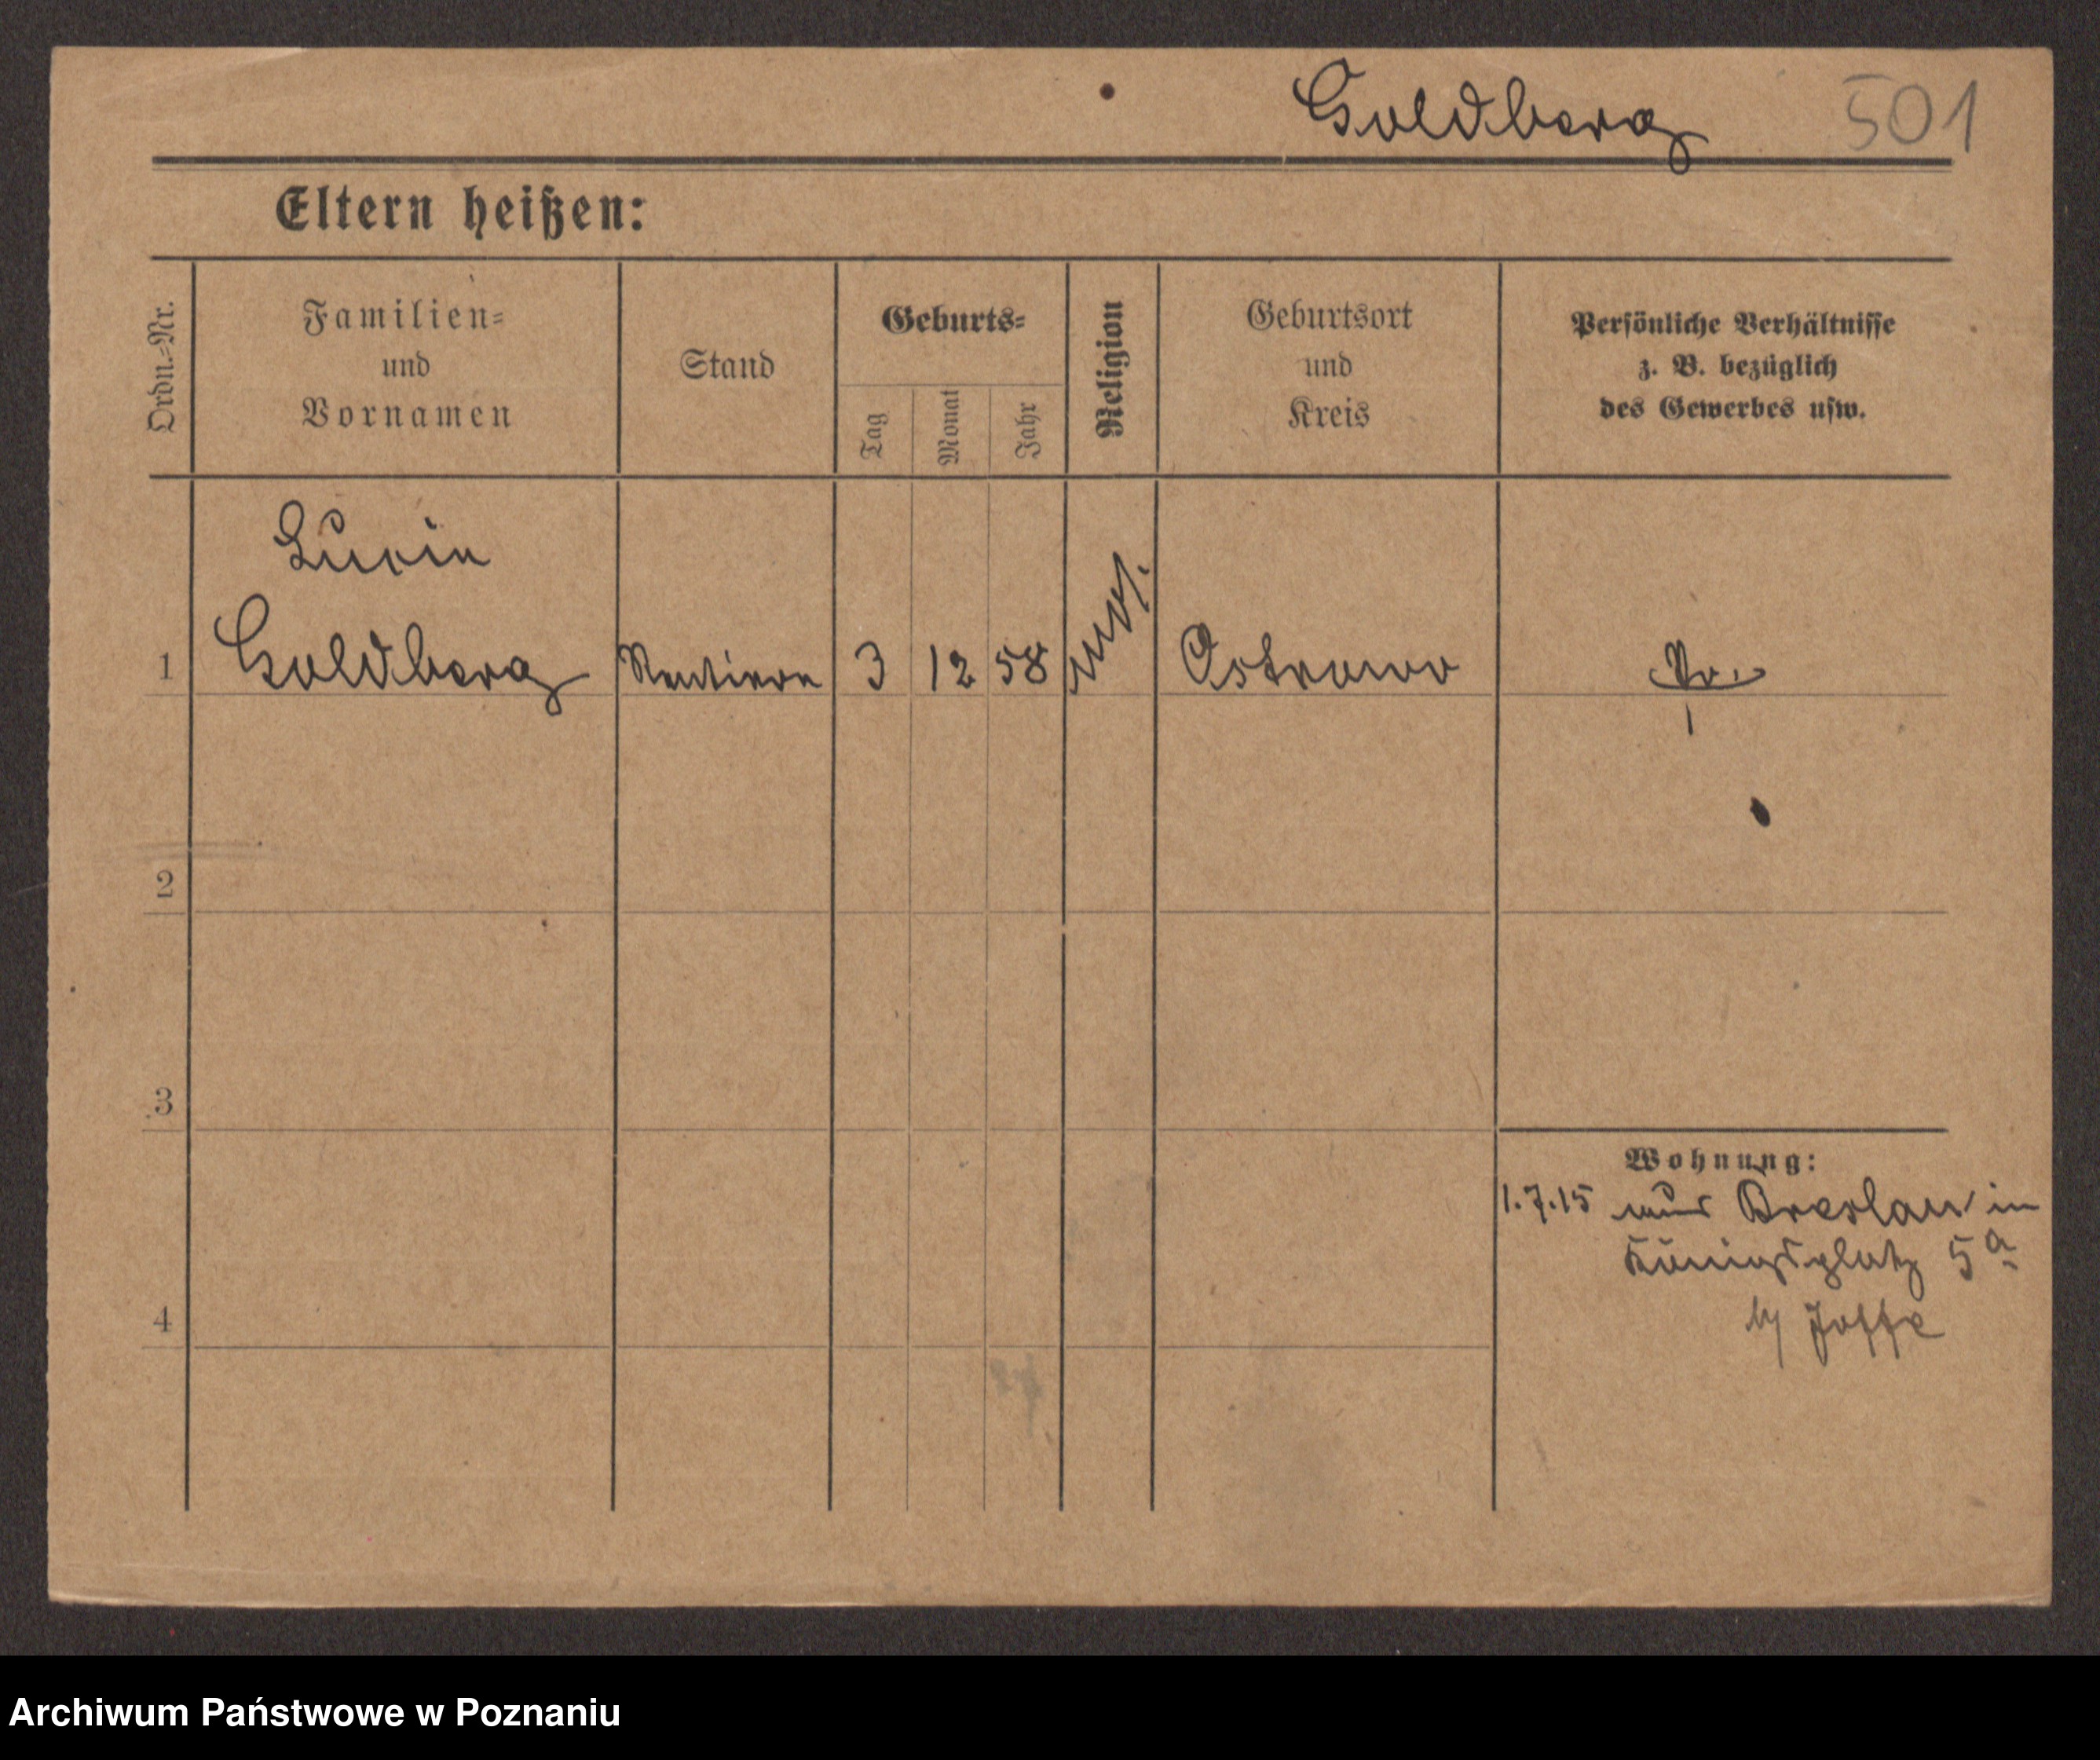 Goldberg 501
Eltern heißen:
Ordn.=Nr.
Familien=
und
Vornamen
Stand
Geburts=
Tag
Monat
Jahr
Religion
Geburtsort
und
Kreis
Persönliche Verhältnisse
z. B. bezüglich
des Gewerbes usw.
Lucie
1 Goldberg Rentiere 3 12 58 mos. Ostrowo Pr.
2
3
Wohnung:
1.7.15 aus Breslau in
Königsplatz 5a
b/ Joffe
4
Archiwum Państwowe w Poznaniu